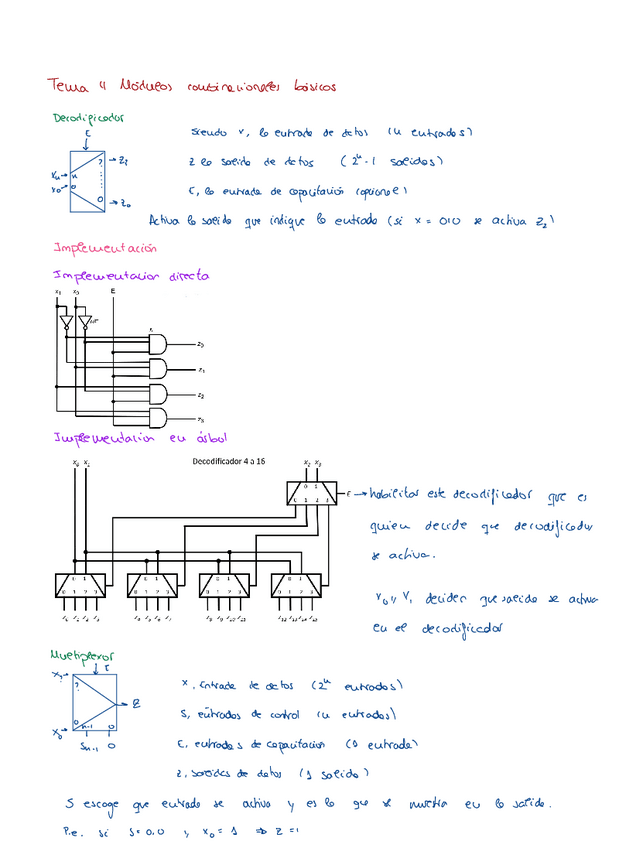 Tema 4 Módulos combinacionales básicos
Decodificador
E
Siendo x, la entrada de datos (n entradas)
Z la salida de datos (2ⁿ-1 salidas)
E, la entrada de capacitación (opcional)
Activa la salida que indique la entrada (si x = 0,0 se activa Z
Implementación
Implementación directa
x₁ x₀ E
z₀
z₁
z₂
z₃
Implementación en árbol
Decodificador 4 a 16
x₀ x₁
x₂ x₃
E → habilitas este decodificador que es
quien decide que decodificador
se activa.
x₀ y x₁ deciden que salida se activa
en el decodificador
0 1
0 1 2 3
Multiplexor
E
x, Entrada de datos (2ⁿ entradas)
S, entradas de control (n entradas)
E, entradas de capacitación (1 entrada)
Z, salidas de datos (1 salida)
x₀
Z
n-1 0
Sn-1 0
S escoge que entrada se activa y es lo que se muestra en la salida.
P.e. si S=0,0 y x₀ = 1 ⇒ Z = 1